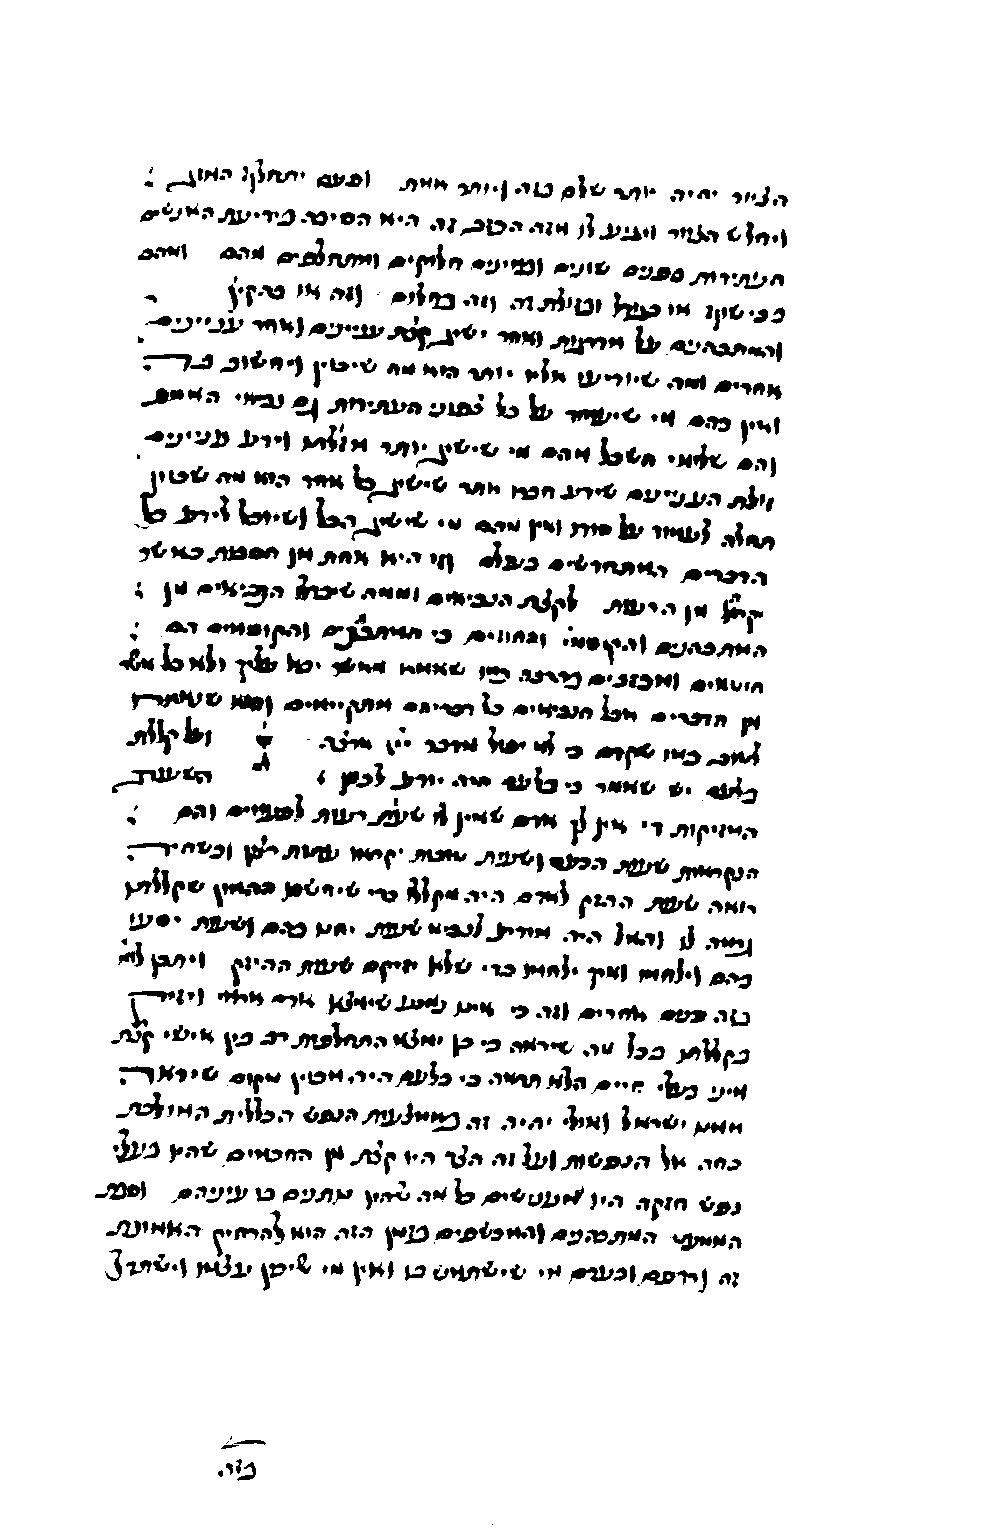 הציור יהיה יותר שלם בזה ויותר אמת ופעם יתחלק האופן
ויחלש הציור ויגיע לו מזה הכזב זה היא הסיבה בידיעת האנשים
העתידות בפנים שונים ובמינים חלוקים ומתחלפים מהם ומהם
בבישוף או בגורל ובזולת זה וזה בחלום וזה או בהקיץ
והמתכהנים על מדרגות ואחד ישיג קצת עניינים ואחד עניינים
אחרים ומה שיודיעו אלא יותר הוא מה שיכוין ויחשוב בה
ואין בהם מי שיעמוד על כל לפני העתידות גם נביאי האמת
והם שלימי השכל מהם מי שישיג יותר מזולתו וידע עניינים
זולת העניינים שידע חבירו אחר שישיג כל אחד הוא מה שכוין
תחלה לעמוד על סודו ואין מהם מי שישיג הכל ושיוכל לידע כל
הדברים המתחדשים בעולם וזו היא אחת מן הסבות כאשר
קרא מן הדעות לקצת הנביאים וממה שיבדלו הנביאים מן
המתכהנים והקוסמים והחוזים כי המתכהנים והקוסמים הם
חוטאים ומכזבים בדברם כמו שאמרו מאשר יבאו עליך ולא כל אשר
מן הדברים אבל הנביאים כל דבריהם מתקיימים
לשוב כמו שקדם כי לא יפול מדבר ייי ארצה ועל קללת
בלעם יש שאמר כי בלעם היה יודע לכוון השעות
המזיקות כי אין לך אדם שאין לו שעות רעות לפעמים והם
הנקראות שעות הכעס ושעות טובות יקראו עתות רצון וכשהיה
רואה שעת ההזק לאדם היה מקללו כדי שיחשבו ההמון שקללתו
גרמה לו והאל היה מודיע לנביא שעות יחנו בהם ושעות יסעו
בהם וילחמו ואיך ילחמו כדי שלא יזיקם שעות ההיזק ויתכן לו
בזה פעם אחרים וזה כי אינו נמנע שימצא אדם אחד ויזיק
בקללתו בכל מה שיראה כי כן ימצא התחלפות רב בין אישי קצת
מיני בעלי חיים הלא תראה כי בלעם היה מכוין מקום שיראה
אותו ישראל ואולי יהיה זה באמצעות הנפש הכללית המולכת
כחה אל הנפשות ועל זה הצד היו קצת מן החכמים שהיו בעלי
נפש חזקה היו מענישים כל מה שהיו נותנים בו עיניהם וסבת
המנעות המתכהנים והמכשפים בזמן הזה הוא להרחיק האמונת
זה ודפם ובערם מי שישתמש בו ואין מי שיכין עצמו וישתדל
בזה